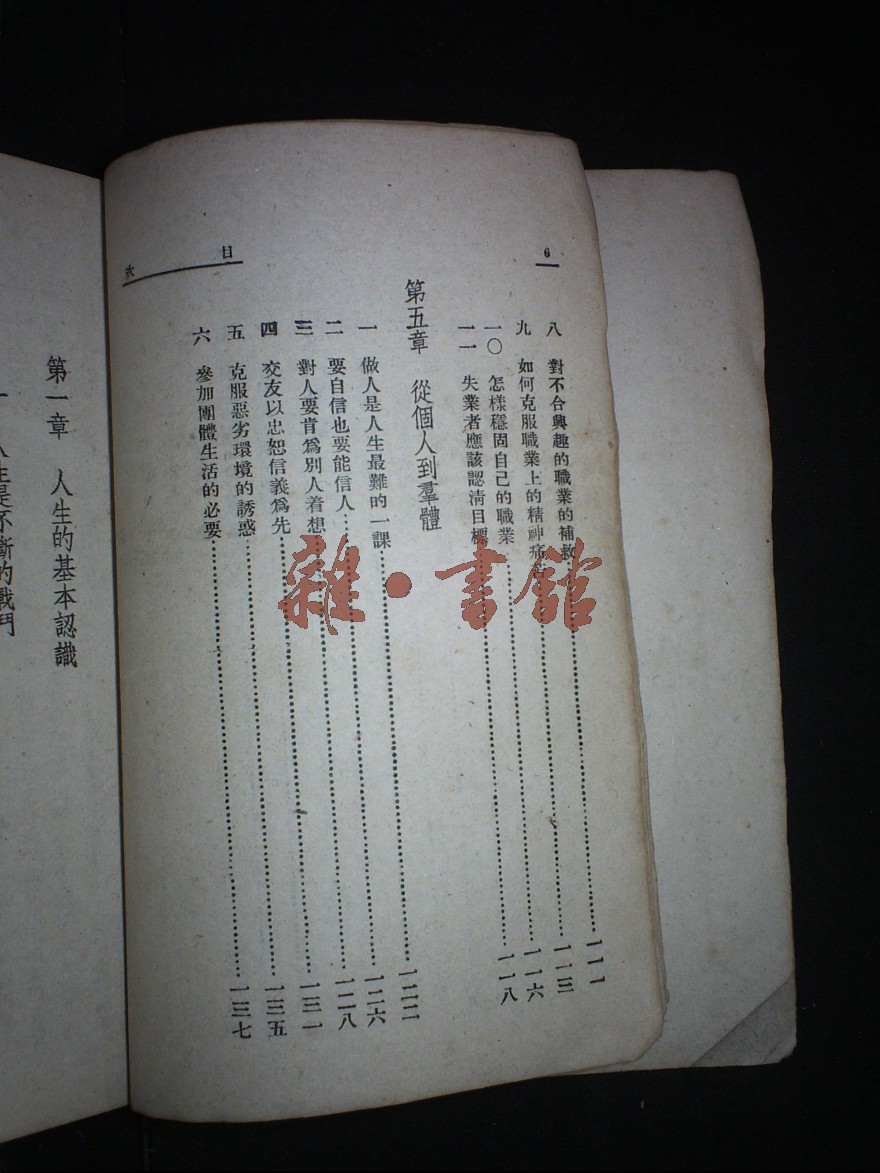 6
八 對不合興趣的職業的補救……一一一
九 如何克服職業上的精神痛苦……一一三
一〇 怎樣穩固自己的職業……一一六
一一 失業者應該認清目標……一一八
第五章 從個人到羣體
一 做人是人生最難的一課……一二二
二 要自信也要能信人……一二六
三 對人要肯爲別人着想……一二八
四 交友以忠恕信義爲先……一三一
五 克服惡劣環境的誘惑……一三五
六 參加團體生活的必要……一三七
目次
第一章 人生的基本認識
一 人生是不斷的戰鬥
雜·書館